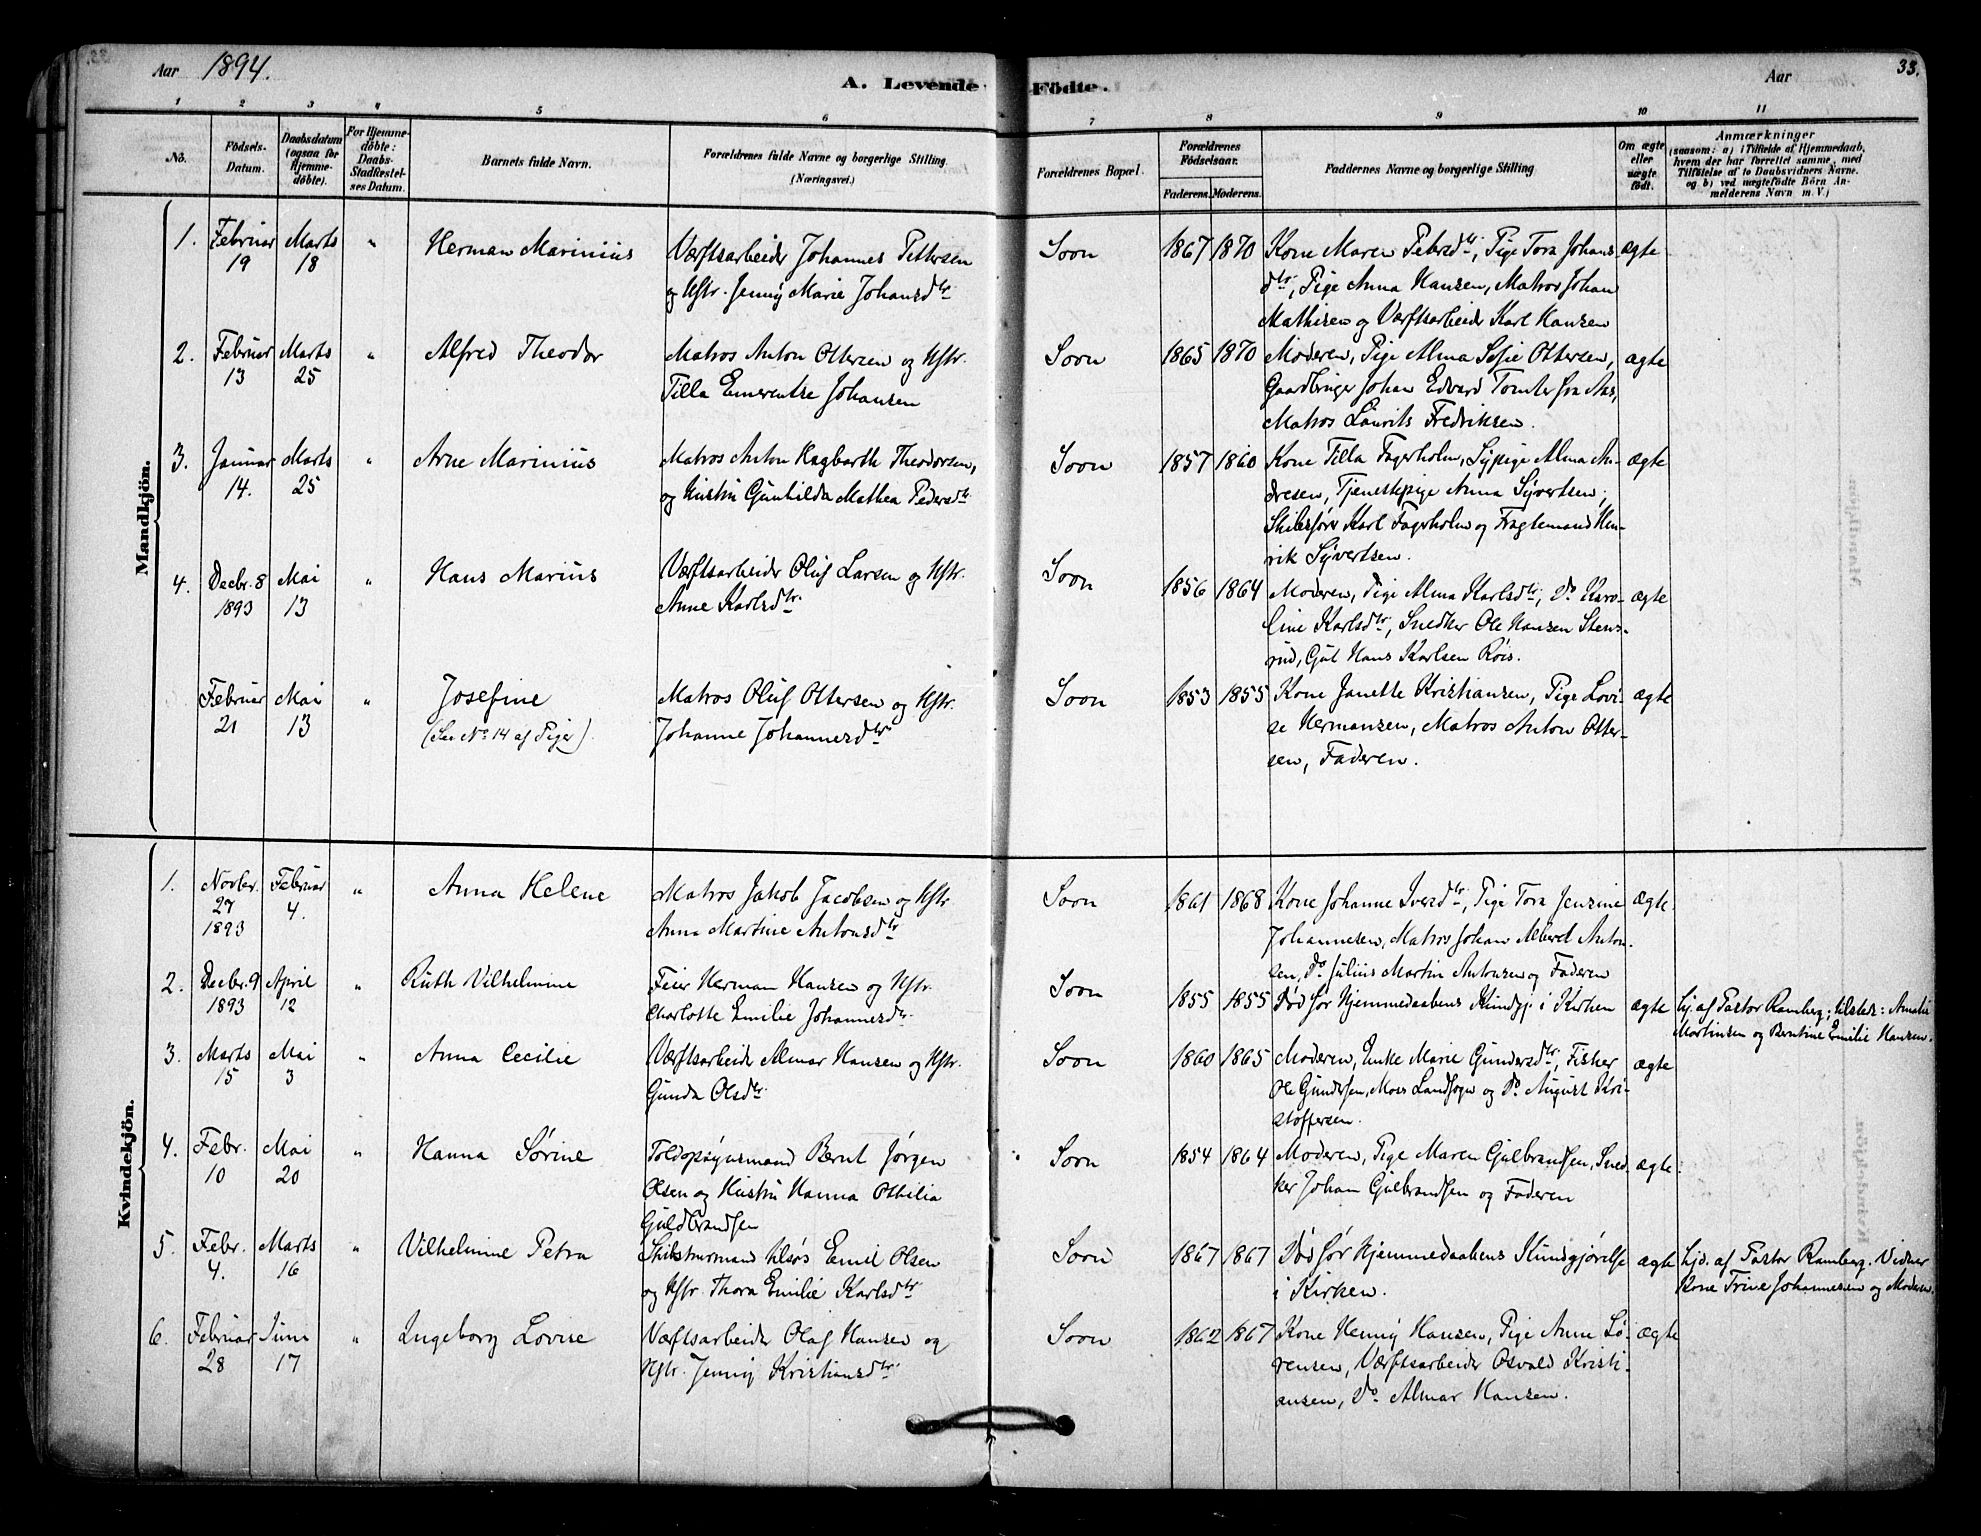 Aar 1894.
A. Levende Födte.
Aar
33.
1 2 3 4 5 6 7 8 9 10 11
No.
Födsels-Datum.
Daabsdatum (ogsaa for Hjemmedöbte).
For Hjemmedöbte: Daabs-Stadfæstelses Datum.
Barnets fulde Navn.
Forældrenes fulde Navne og borgerlige Stilling. (Næringsvei.)
Forældrenes Bopæl.
Forældrenes Födselsaar.
Faderens. Moderens.
Faddernes Navne og borgerlige Stilling
Om ægte eller uægte födt.
Anmærkninger
(saasom: a) i Tilfælde af Hjemmedaab, hvem der har forrettet samme, med Tilföielse af to Daabsvidners Navne. og b) ved uægtefödte Börn Anmelderens Navn m. V.)
Mandkjön.
1. Februar 19 Marts 18 " Herman Marinius
Værftsarbeider Johannes Pettersen
og Hstr. Jenny Marie Johansdtr
Soon 1867 1870
Kone Maren Pedersdtr, Pige Tora Johans-
dtr, Pige Anna Hansen, Matros Johan
Mathisen og Værftsarbeider Karl Hansen
ægte
2. Februar 13 Marts 25 " Alfred Theodor
Matros Anton Ottersen og Hstr.
Tilla Emerentse Johansen
Soon 1865 1870
Moderen, Pige Alma Sofie Ottersen,
Gaardbruger Johan Edvard Tomter fra Aas,
Matros Laurits Fredriksen.
ægte
3. Januar 14. Marts 25 " Arne Marinius
Matros Anton Hagbarth Theodorsen,
og Hustru Gunhilda Mathea Pedersdtr
Soon 1857 1860
Kone Tilla Fagerholm, Sypige Alma An-
dresen, Tjenestepige Anna Syvertsen,
Skibsfører Karl Fagerholm og Fragtemand Hen-
rik Syvertsen.
ægte
4. Decbr. 8 1893 Mai 13 " Hans Marius
Værftsarbeider Oluf Larsen og Hstr.
Anne Karlsdtr
Soon 1856 1864
Moderen, Pige Alma Karlsdtr, Do Karo-
line Karlsdtr, Snedker Ole Hansen Stens-
rud, Gut Hans Karlsen Røis.
ægte
Februar 21 Mai 13 " Josefine
(See No 14 af Piger).
Matros Oluf Ottersen og Hstr.
Johanne Johannesdtr
Soon 1853 1855
Kone Janette Kristiansen, Pige Lovi-
se Hermansen, Matros Anton Otter-
sen, Faderen.
ægte
Kvindekjön.
1. Novbr. 27 1893 Februar 4. " Anna Helene
Matros Jakob Jacobsen og Hstr.
Anna Martine Antonsdtr
Soon 1861 1868
Kone Johanne Iversdtr, Pige Tora Jensine
Johannesen, Matros Johan Albert Anton-
sen, Do Julius Martin Antonsen og Faderen
ægte.
2. Decbr. 9 1893 April 12 " Ruth Vilhelmine
Feier Herman Hansen og Hstr.
Charlotte Emilie Johannesdtr.
Soon 1855 1855
Død før Hjemmedaabens Kundgj i Kirken
ægte
hj. af Pastor Ramberg; tilsteds: Amalie
Martinsen og Berntine Emilie Hansen.
3. Marts 15 Mai 3 " Anna Cecilie
Værftsarbeider Almar Hansen og Hstr.
Gunda Olsdtr
Soon 1860 1865
Moderen, Enke Marie Gundersdtr, Fisker
Ole Gundersen, Moss Landsogn og Do August Kri-
stoffersen.
ægte
4. Febr. 10 Mai 20 " Hanna Sørine
Toldopsynsmand Bernt Jørgen
Olsen og Hustru Hanna Othilia
Guldbrandsen
Soon 1854 1864
Moderen, Pige Maren Gulbrandsen, Sned-
ker Johan Gulbrandsen og Faderen
ægte.
5. Febr. 4. Marts 16 " Vilhelmine Petra
Skibsturmand tilsøs Emil Olsen
og Hstr. Thora Emilie Karlsdtr
Soon 1867 1867
Død før Hjemmedaabens Kundgjørelse
i Kirken.
ægte
hjd. af Pastor Ramberg. Vidner
Kone Trine Johannesen og Moderen.
6. Februar 28 Juni 17 " Ingeborg Lovise
Værftsarbeider Olaf Hansen og
Hstr. Jenny Kristiansdtr.
Soon 1862 1867
Kone Henny Hansen, Pige Anne Sø-
rensen, Værftsarbeider Osvald Kristi-
ansen, Do Almar Hansen.
ægte